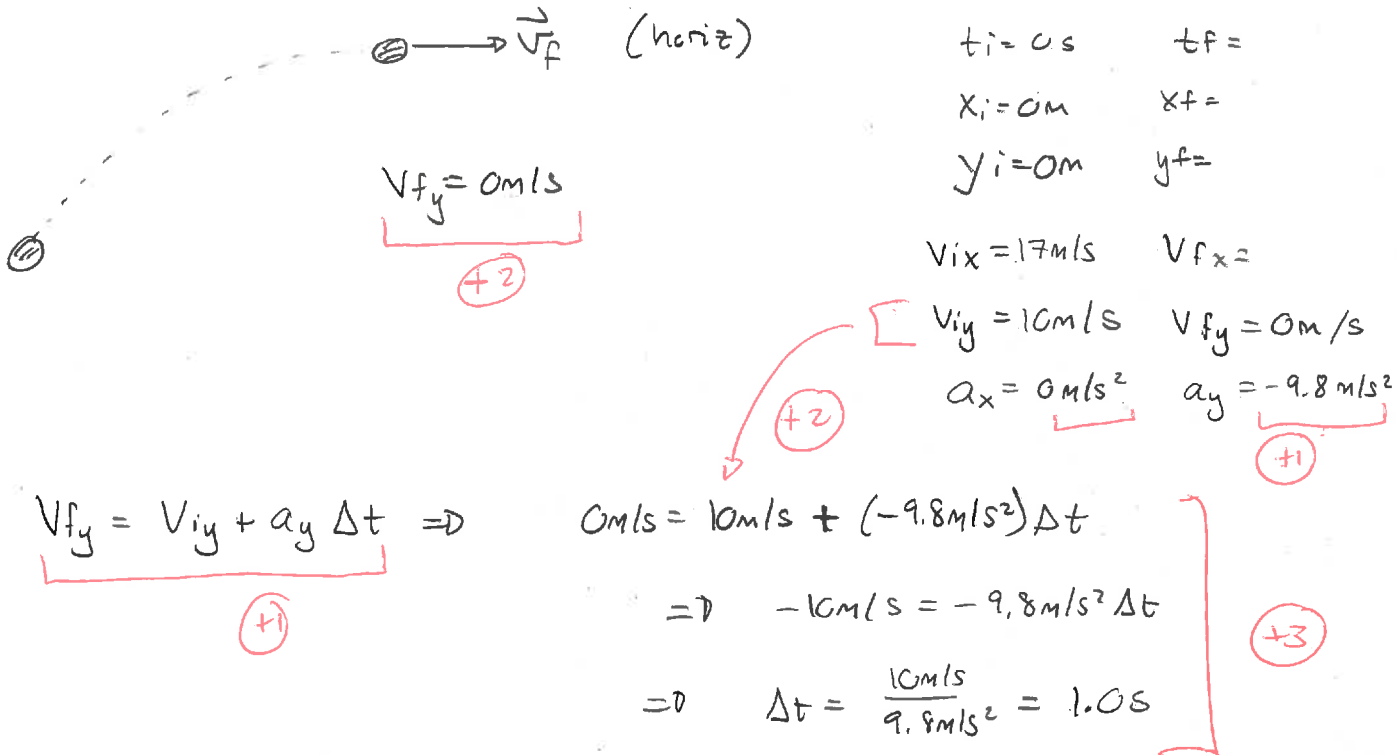 v⃗f (horiz)
ti = 0s tf =
xi = 0m xf =
yi = 0m yf =
Vfy = 0m/s
+2
Vix = 17m/s Vfx =
Viy = 10m/s Vfy = 0m/s
ax = 0m/s² ay = -9.8m/s²
+2
+1
Vfy = Viy + ay Δt ⇒ 0m/s = 10m/s + (-9.8m/s²)Δt
+1
⇒ -10m/s = -9.8m/s² Δt
+3
⇒ Δt = 10m/s / 9.8m/s² = 1.0s